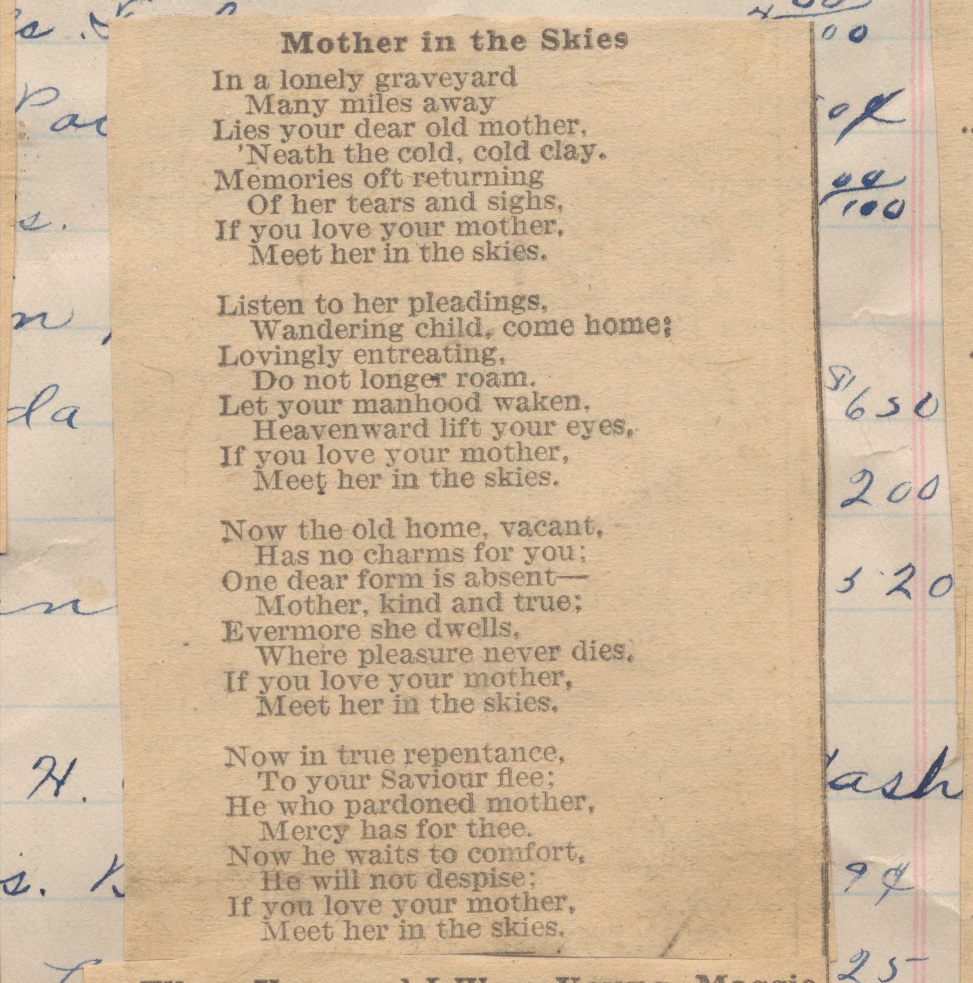 Mother in the Skies
In a lonely graveyard
Many miles away
Lies your dear old mother,
'Neath the cold, cold clay.
Memories oft returning
Of her tears and sighs,
If you love your mother,
Meet her in the skies.
Listen to her pleadings,
Wandering child, come home;
Lovingly entreating,
Do not longer roam.
Let your manhood waken,
Heavenward lift your eyes,
If you love your mother,
Meet her in the skies.
Now the old home, vacant,
Has no charms for you;
One dear form is absent—
Mother, kind and true;
Evermore she dwells,
Where pleasure never dies.
If you love your mother,
Meet her in the skies.
Now in true repentance,
To your Saviour flee;
He who pardoned mother,
Mercy has for thee.
Now he waits to comfort,
He will not despise;
If you love your mother,
Meet her in the skies.
00
04
00
100
s.
da
650
200
5 20
H.
ash
s.
9¢
25
Maggie